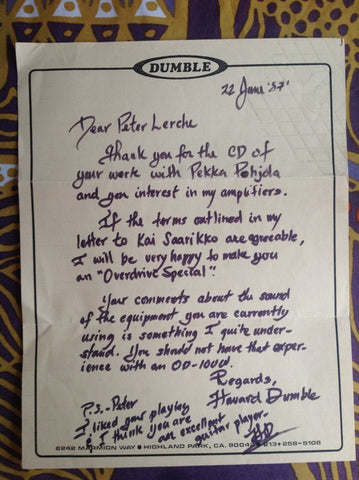 DUMBLE
22 June '87'
Dear Peter Lerche
Thank you for the CD of
your work with Pekka Pohjola
and you interest in my amplifiers.
If the terms outlined in my
letter to Kai Saarikko are agreeable,
I will be very happy to make you
an "Overdrive Special".
Your comments about the sound
of the equipment you are currently
using is something I quite under-
stand. You should not have that exper-
ience with an OD-100W.
Regards,
Howard Dumble
P.S. - Peter
I liked your playing
& I think you are
an excellent
guitar player.
HD
6242 MARMION WAY • HIGHLAND PARK, CA. 90042 213•258-5108